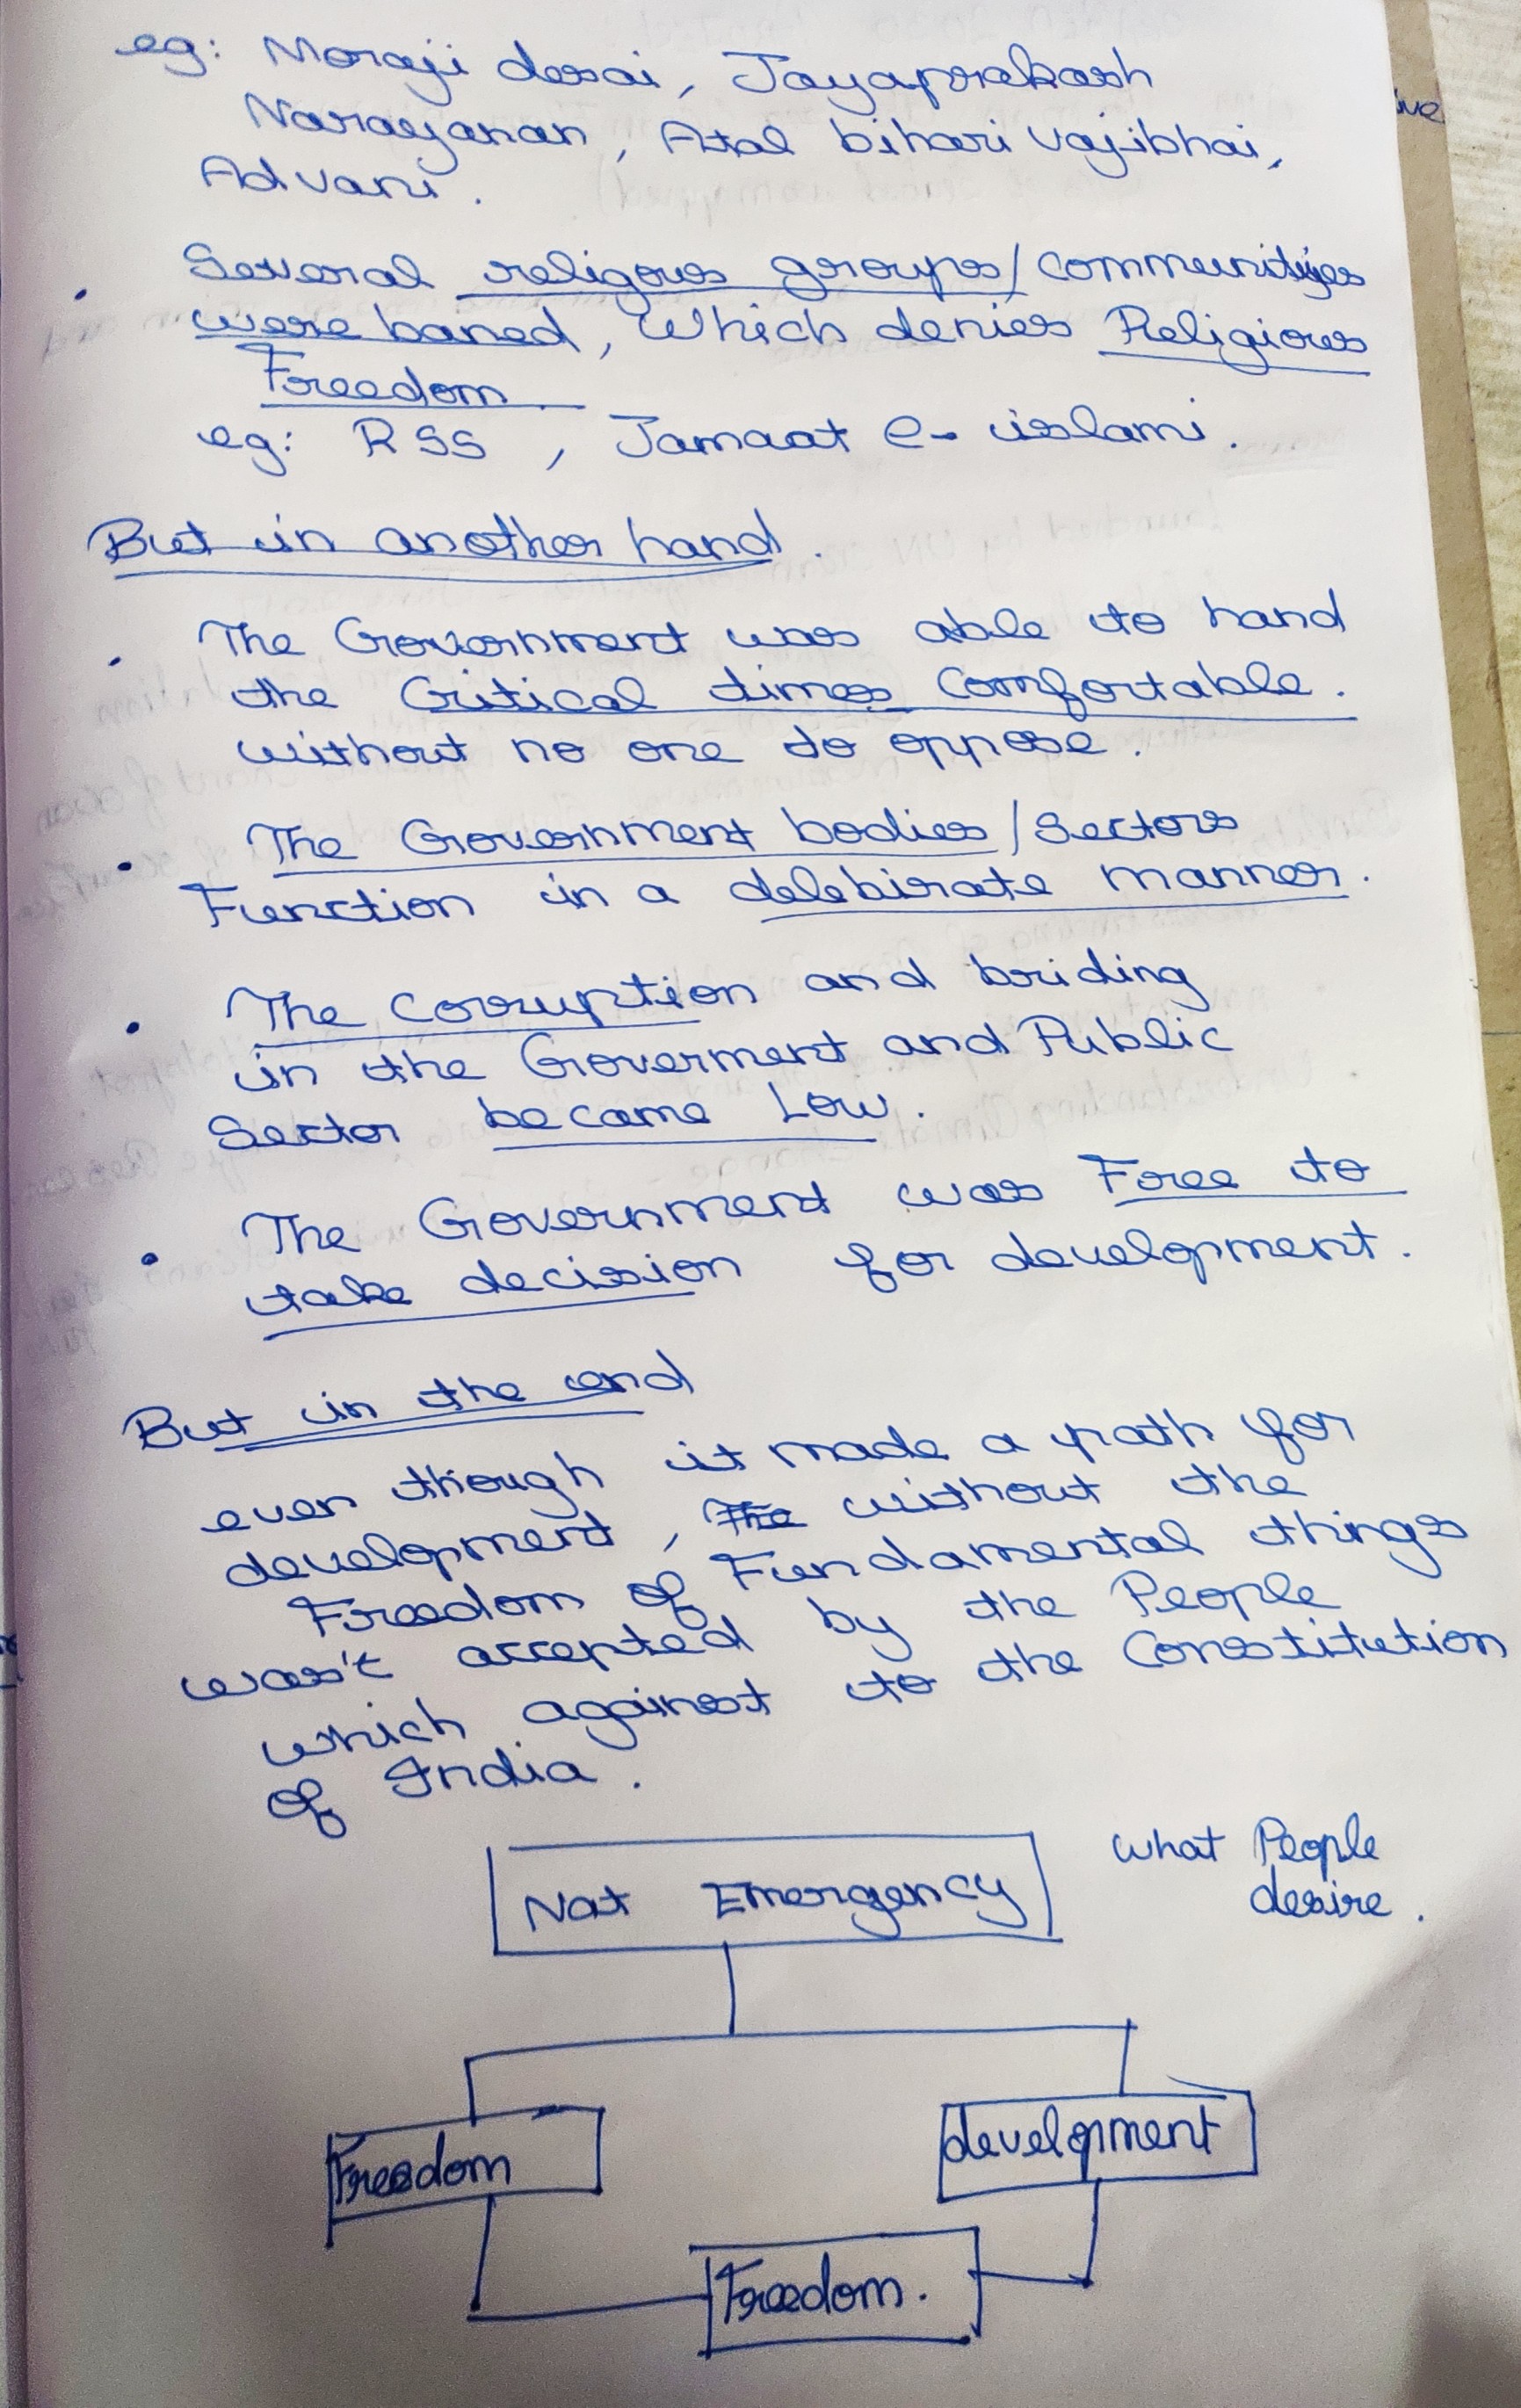 eg: Moraji desai, Jayaprakash
Narayanan, Atal bihari vajibhai,
Advani.
• Several religous groups/communities
were baned, Which denies Religious
Freedom
eg: RSS, Jamaat e- islami.
But in another hand.
• The Government was able to hand
the Critical times Comfortable.
without no one to oppose.
• The Government bodies/Sectors
Function in a delebirate manner.
• The Corruption and briding
in the Goverment and Public
Sector became Low.
• The Government was Free to
take decision for development.
But in the end
even though it made a path for
development, without the
Freedom of Fundamental things
wasn't accepted by the People
which against to the Constitution
of India.
What People
desire.
Nat Emergency
Freedom
development
Freedom.